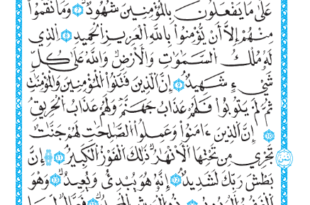 عَلَىٰ مَا يَفْعَلُونَ بِالْمُؤْمِنِينَ شُهُودٌ ۝ وَمَا نَقَمُوا
مِنْهُمْ إِلَّا أَن يُؤْمِنُوا بِاللَّهِ الْعَزِيزِ الْحَمِيدِ ۝ الَّذِي
لَهُ مُلْكُ السَّمَاوَاتِ وَالْأَرْضِ وَاللَّهُ عَلَىٰ كُلِّ
شَيْءٍ شَهِيدٌ ۝ إِنَّ الَّذِينَ فَتَنُوا الْمُؤْمِنِينَ وَالْمُؤْمِنَاتِ
ثُمَّ لَمْ يَتُوبُوا فَلَهُمْ عَذَابُ جَهَنَّمَ وَلَهُمْ عَذَابُ الْحَرِيقِ
۝ إِنَّ الَّذِينَ ءَامَنُوا وَعَمِلُوا الصَّالِحَاتِ لَهُمْ جَنَّاتٌ
تَجْرِي مِن تَحْتِهَا الْأَنْهَارُ ذَٰلِكَ الْفَوْزُ الْكَبِيرُ ۝ إِنَّ
بَطْشَ رَبِّكَ لَشَدِيدٌ ۝ إِنَّهُ هُوَ يُبْدِئُ وَيُعِيدُ ۝ وَهُوَ